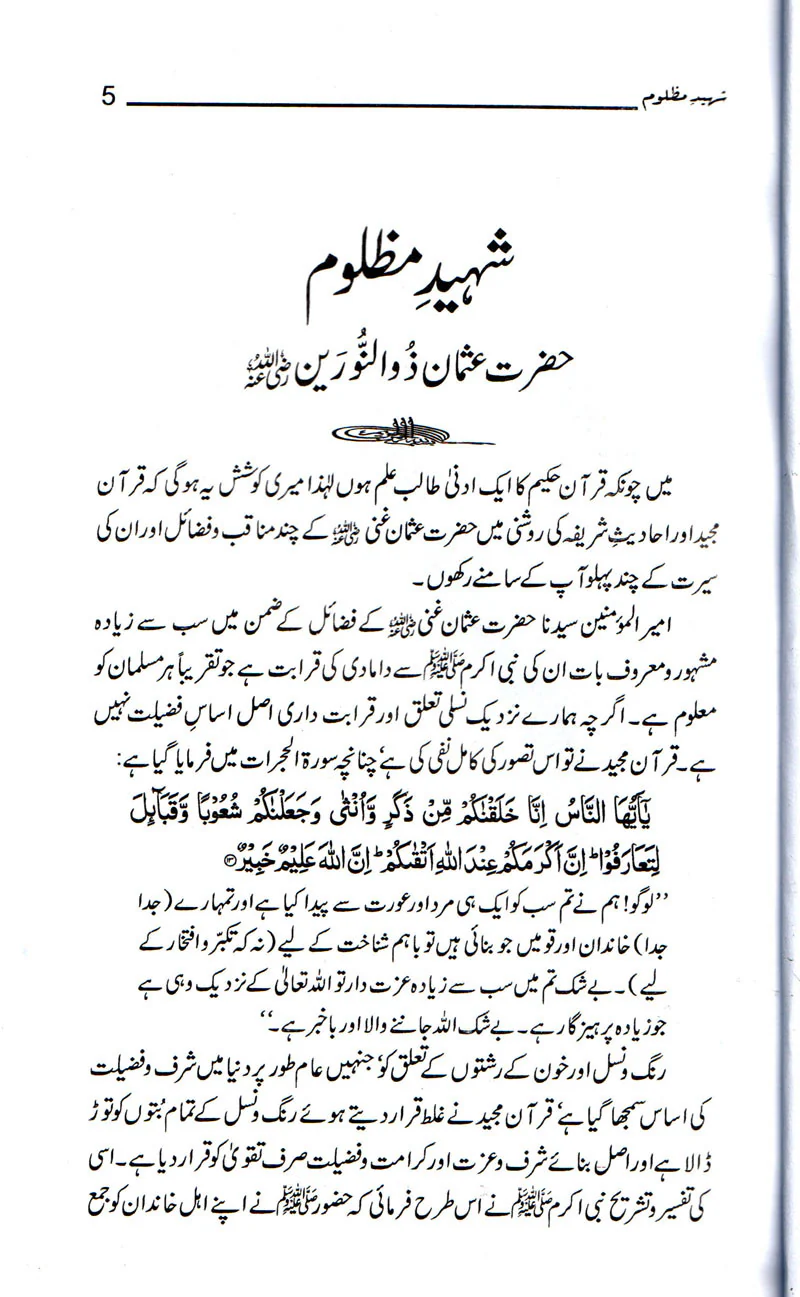 شہیدِ مظلوم 5
شہیدِ مظلوم
حضرت عثمان ذُوالنُّورَین رضی اللہ عنہ
میں چونکہ قرآن حکیم کا ایک ادنیٰ طالب علم ہوں لہٰذا میری کوشش یہ ہوگی کہ قرآن
مجید اور احادیثِ شریفہ کی روشنی میں حضرت عثمان غنی رضی اللہ عنہ کے چند مناقب وفضائل اور ان کی
سیرت کے چند پہلو آپ کے سامنے رکھوں۔
امیر المؤمنین سیدنا حضرت عثمان غنی رضی اللہ عنہ کے فضائل کے ضمن میں سب سے زیادہ
مشہور و معروف بات ان کی نبی اکرم ﷺ سے دامادی کی قرابت ہے جو تقریباً ہر مسلمان کو
معلوم ہے۔ اگرچہ ہمارے نزدیک نسلی تعلق اور قرابت داری اصل اساسِ فضیلت نہیں
ہے۔ قرآن مجید نے تو اس تصور کی کامل نفی کی ہے‘ چنانچہ سورۃ الحجرات میں فرمایا گیا ہے:
یٰۤاَیُّهَا النَّاسُ اِنَّا خَلَقْنٰكُمْ مِّنْ ذَكَرٍ وَّاُنْثٰى وَجَعَلْنٰكُمْ شُعُوْبًا وَّقَبَآىِٕلَ
لِتَعَارَفُوْا ؕ اِنَّ اَكْرَمَكُمْ عِنْدَ اللّٰهِ اَتْقٰىكُمْ ؕ اِنَّ اللّٰهَ عَلِیْمٌ خَبِیْرٌ ﴿۱۳﴾
’’لوگو! ہم نے تم سب کو ایک ہی مرد اور عورت سے پیدا کیا ہے اور تمہارے (جدا
جدا) خاندان اور قومیں جو بنائی ہیں تو باہم شناخت کے لیے (نہ کہ تکبّر و افتخار کے
لیے)۔ بے شک تم میں سب سے زیادہ عزت دار تو اللہ تعالیٰ کے نزدیک وہی ہے
جو زیادہ پرہیزگار ہے۔ بے شک اللہ جاننے والا اور باخبر ہے۔‘‘
رنگ ونسل اور خون کے رشتوں کے تعلق کو‘ جنہیں عام طور پر دنیا میں شرف وفضیلت
کی اساس سمجھا گیا ہے‘ قرآن مجید نے غلط قرار دیتے ہوئے رنگ ونسل کے تمام بُتوں کو توڑ
ڈالا ہے اور اصل بنائے شرف وعزت اور کرامت وفضیلت صرف تقویٰ کو قرار دیا ہے۔ اسی
کی تفسیر وتشریح نبی اکرم ﷺ نے اس طرح فرمائی کہ حضور ﷺ نے اپنے اہل خاندان کو جمع